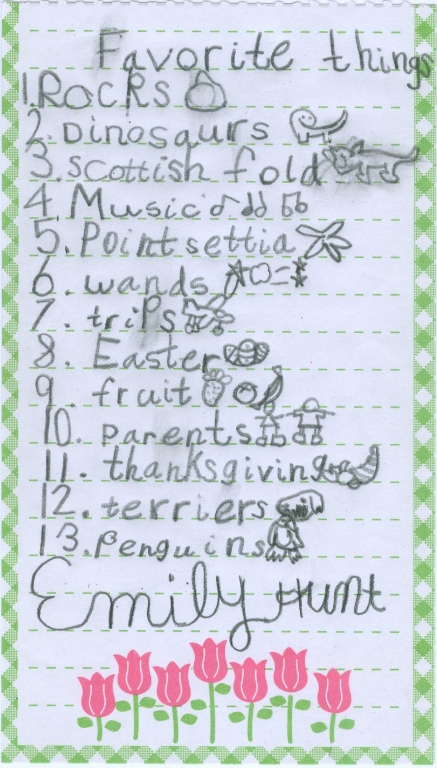 Favorite things
1. Rocks
2. Dinosaurs
3. Scottish fold
4. Music
5. Pointsettia
6. wands
7. trips
8. Easter
9. fruit
10. parents
11. thanksgiving
12. terriers
13. Penguins
Emily Hunt